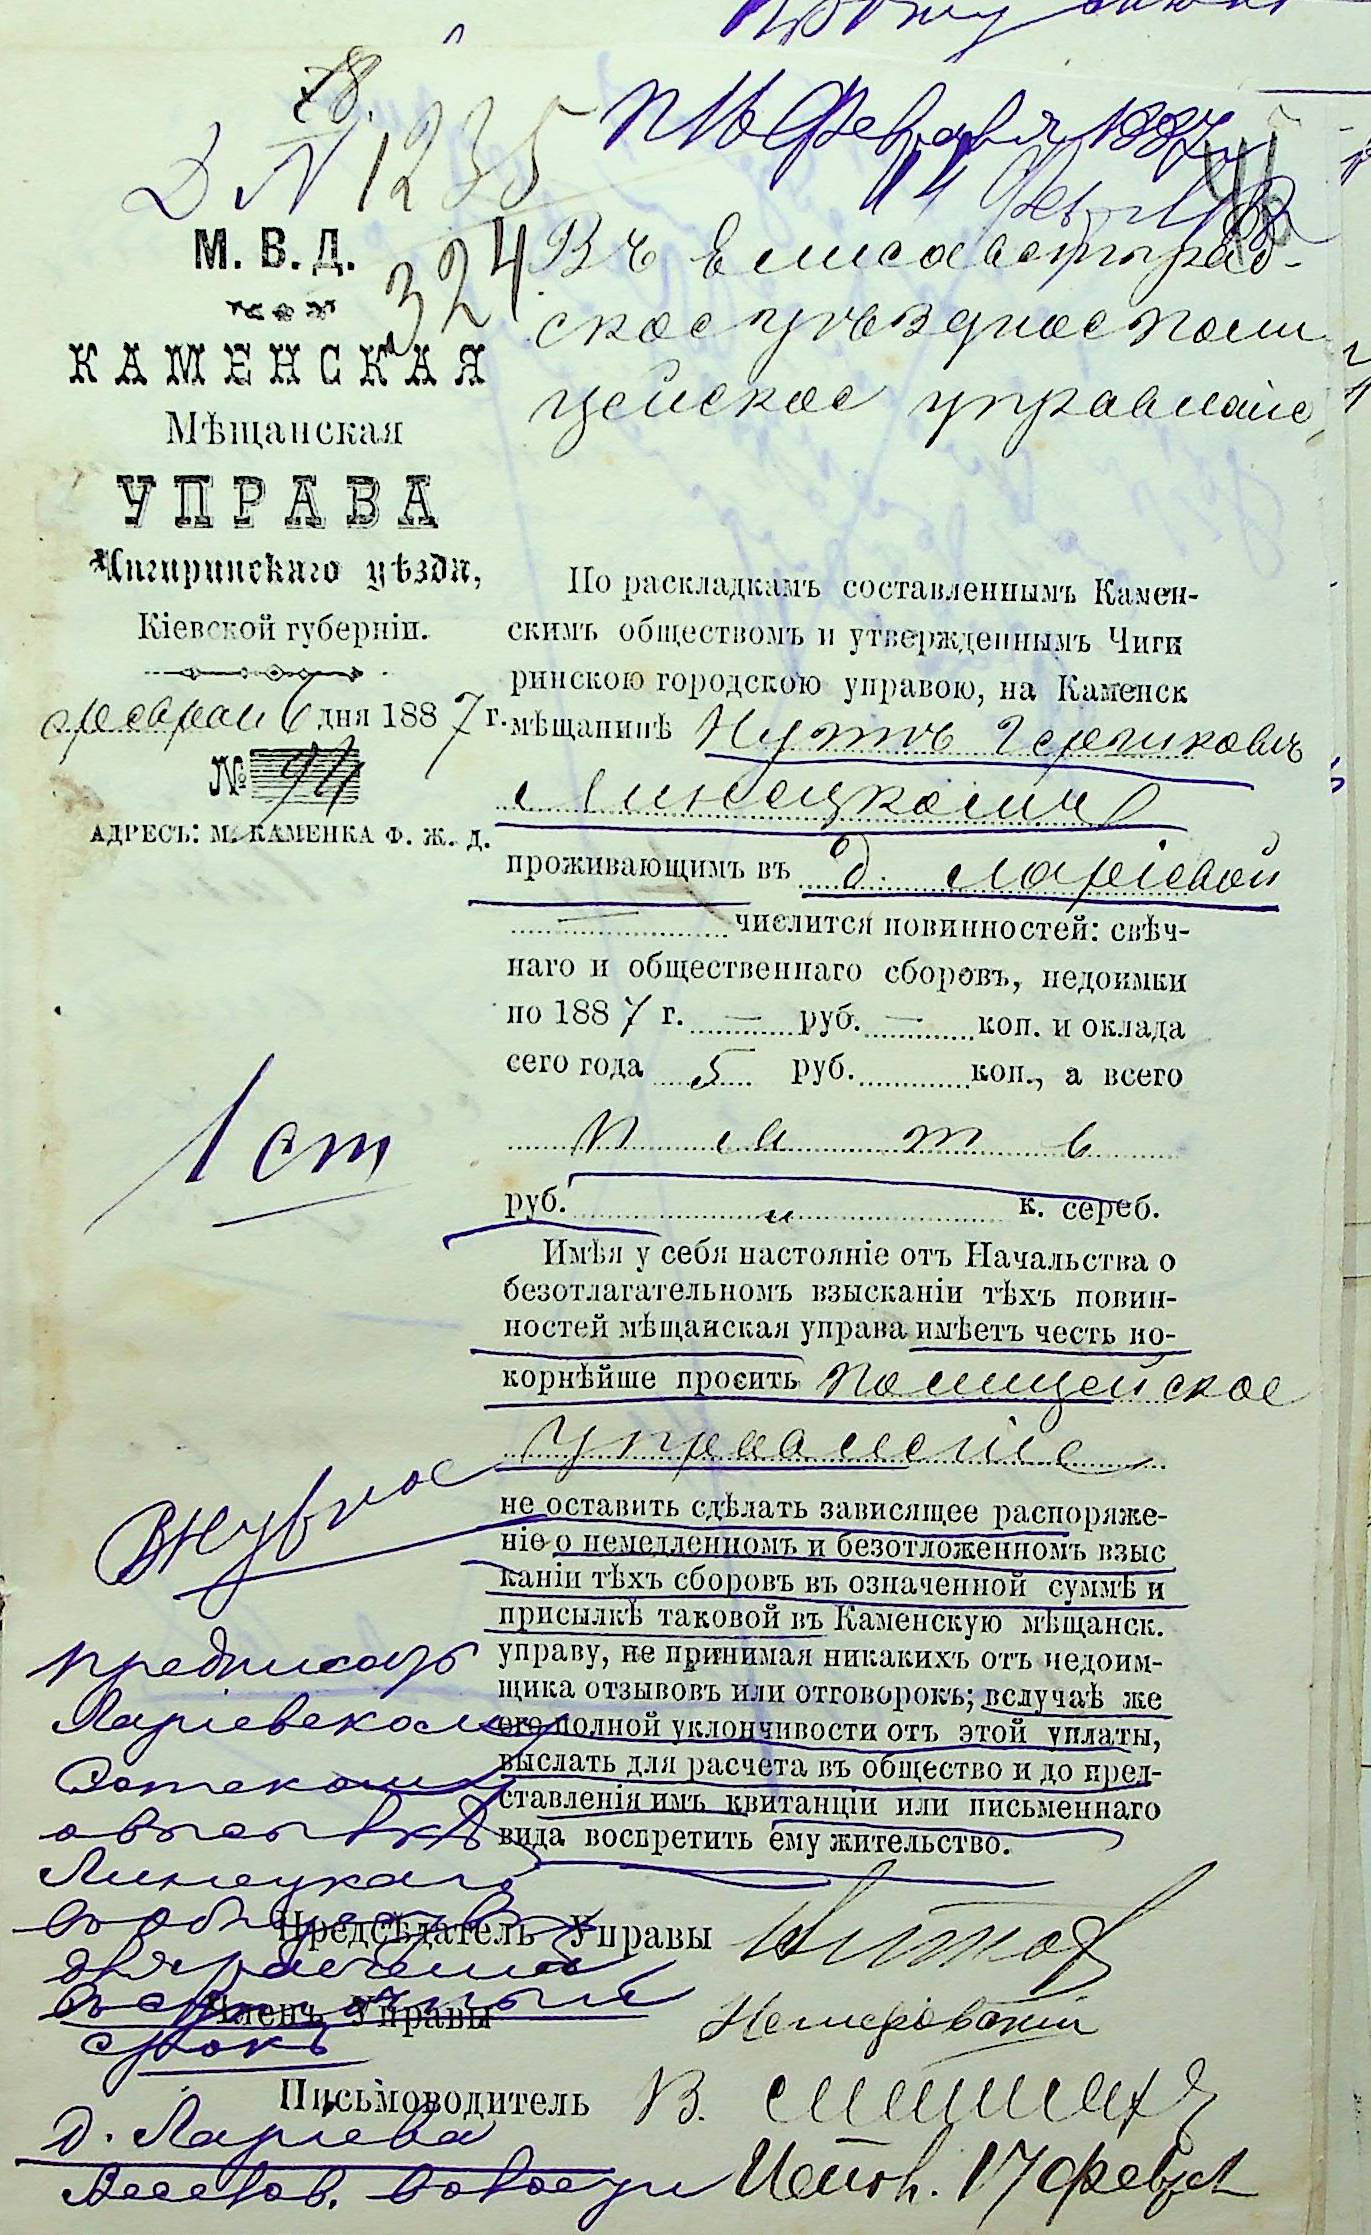 78.
Д № 1235
П 16 Февраля 1887 г.
14 Февр
46
М. В. Д.
324
КАМЕНСКАЯ
Мѣщанская
УПРАВА
Чигиринскаго уѣзда,
Кіевской губерніи.
февраля 6 дня 1887 г.
№ 94
АДРЕСЪ: М. КАМЕНКА Ф. Ж. Д.
Въ Елисаветград-
ское уѣздное поли
цейское управленіе
По раскладкамъ составленнымъ Камен-
скимъ обществомъ и утвержденнымъ Чиги
ринскою городскою управою, на Каменск
мѣщанинѣ Нутѣ Гершковичѣ
Линецкомъ
проживающимъ въ д. Ларіевой
числится повинностей: свѣч-
наго и общественнаго сборовъ, недоимки
по 1887 г. — руб. — коп. и оклада
сего года 5 руб. коп., а всего
пять
руб. к. сереб.
Имѣя у себя настояніе отъ Начальства о
безотлагательномъ взысканіи тѣхъ повин-
ностей мѣщанская управа имѣетъ честь по-
корнѣйше просить полицейское
управленіе
не оставить сдѣлать зависящее распоряже-
ніе о немедленномъ и безотложенномъ взыс
каніи тѣхъ сборовъ въ означенной суммѣ и
присылкѣ таковой въ Каменскую мѣщанск.
управу, не принимая никакихъ отъ недоим-
щика отзывовъ или отговорокъ; вслучаѣ же
его полной уклончивости отъ этой уплаты,
выслать для расчета въ общество и до пред-
ставленія имъ квитанціи или письменнаго
вида воспретить ему жительство.
1 ст
предписать
Ларіевскому
Сотскому
о высылкѣ
Линецкаго
въ общество
для расчета
срокъ
Предсѣдатель Управы
Членъ Управы
Немировскій
Письмоводитель В.
д. Ларіева
Исполн. 17 Февр